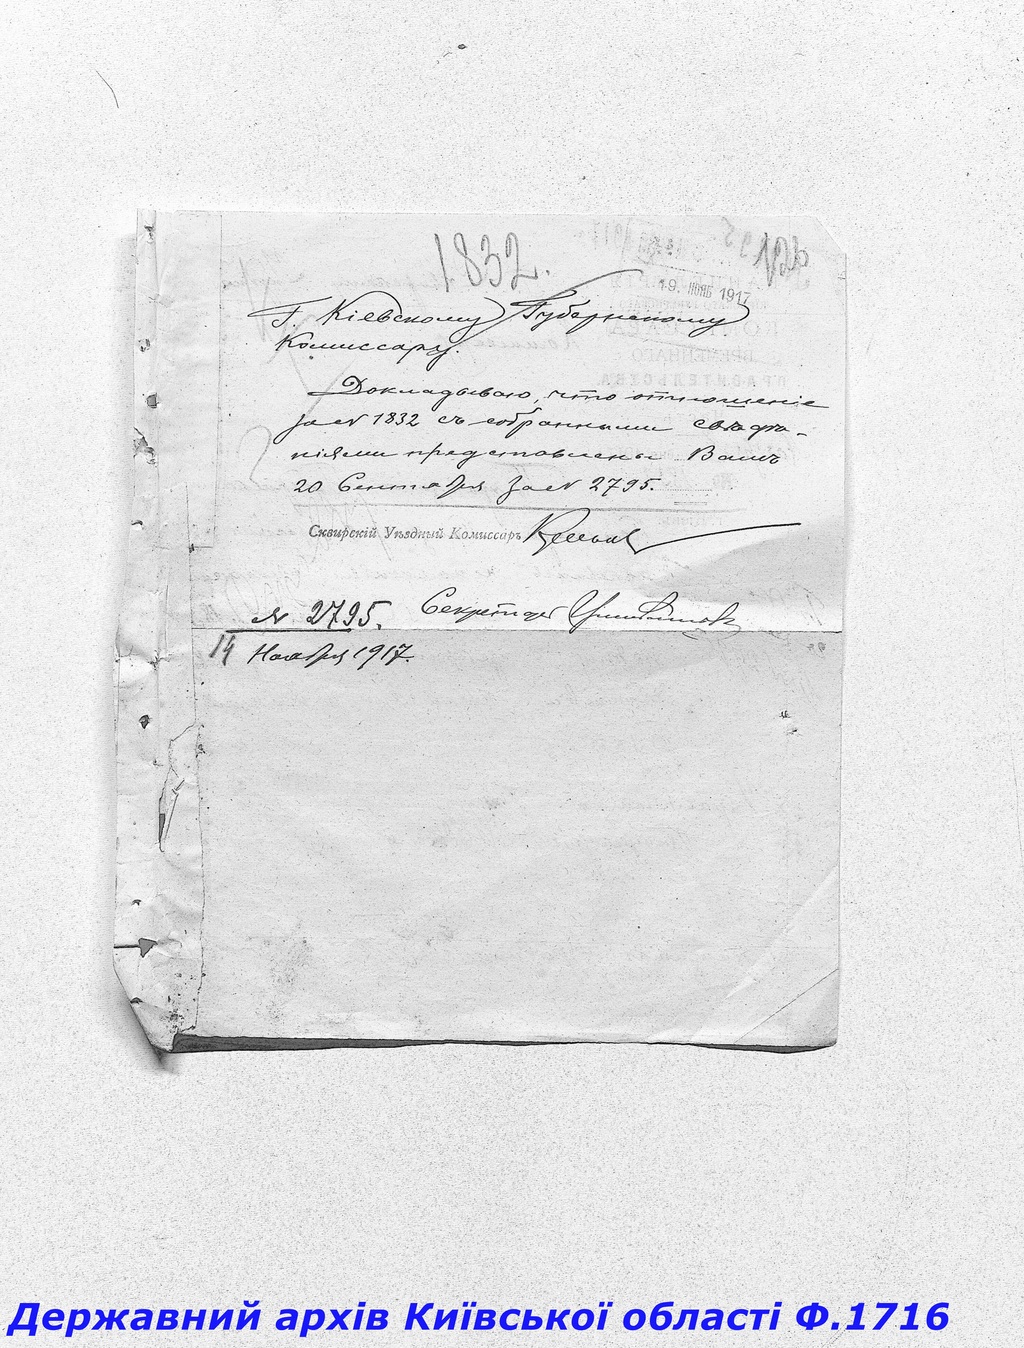 1832.
19. НОЯБ 1917
Г. Кіевскому Губернскому
Комиссару.
Докладываю, что отношеніе
за № 1832 съ собранными свѣдѣ-
ніями представлены Вамъ
20 Сентября за № 2795.
Сквирскій Уѣздный Комиссаръ
Секретарь
№ 2795.
14 Ноября 1917.
Державний архів Київської області Ф.1716